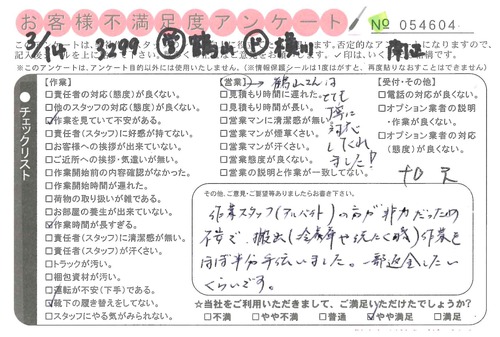 お客様不満足度アンケート
№ 054604
3/19 3299
この
※このアンケートは、アンケート目的以外には使用いたしません。
チェックリスト
【作業】
□責任者の対応(態度)が良くない。
□他のスタッフの対応(態度)が良くない。
作業を見ていて不安がある。
□責任者(スタッフ)に好感が持てない。
□お客様への挨拶が出来ていない。
□ご近所への挨拶・気遣いが無い。
□作業開始前の内容確認がなかった。
□作業開始時間が遅れた。
□荷物の取り扱いが雑である。
□お部屋の養生が出来ていない。
作業時間が長すぎる。
□責任者(スタッフ)に清潔感が無い。
□責任者(スタッフ)が汗くさい。
□トラックが汚い。
□梱包資材が汚い。
□運転が不安(下手)である。
靴下の履き替えをしてない。
□スタッフにやる気がみられない。
【営業】
鶴山さんは
とても
丁寧に
対応
してくれ
ました!
□見積もりに遅れた。
□見積もり時間が長い。
□営業マンに清潔感が無い。
□営業マンが煙草くさい。
□営業マンが汗くさい。
□営業態度が良くない。
□営業の説明と作業が一致してない。
【受付・その他】
□電話の対応が良くない。
□オプション業者の説明
・作業が良くない。
□オプション業者の対応
(態度)が良くない。
その他、ご意見・ご要望等ありましたらお書き下さい。
作業スタッフ(アルバイト)の方が非力だったため
不安で、搬出(冷蔵庫や洗たく機)作業を
ほぼ半分手伝いました。一部返金してほしい
くらいです。
☆当社をご利用いただきまして、ご満足いただけたでしょうか?
□不満 □やや不満 □普通 やや満足 □満足